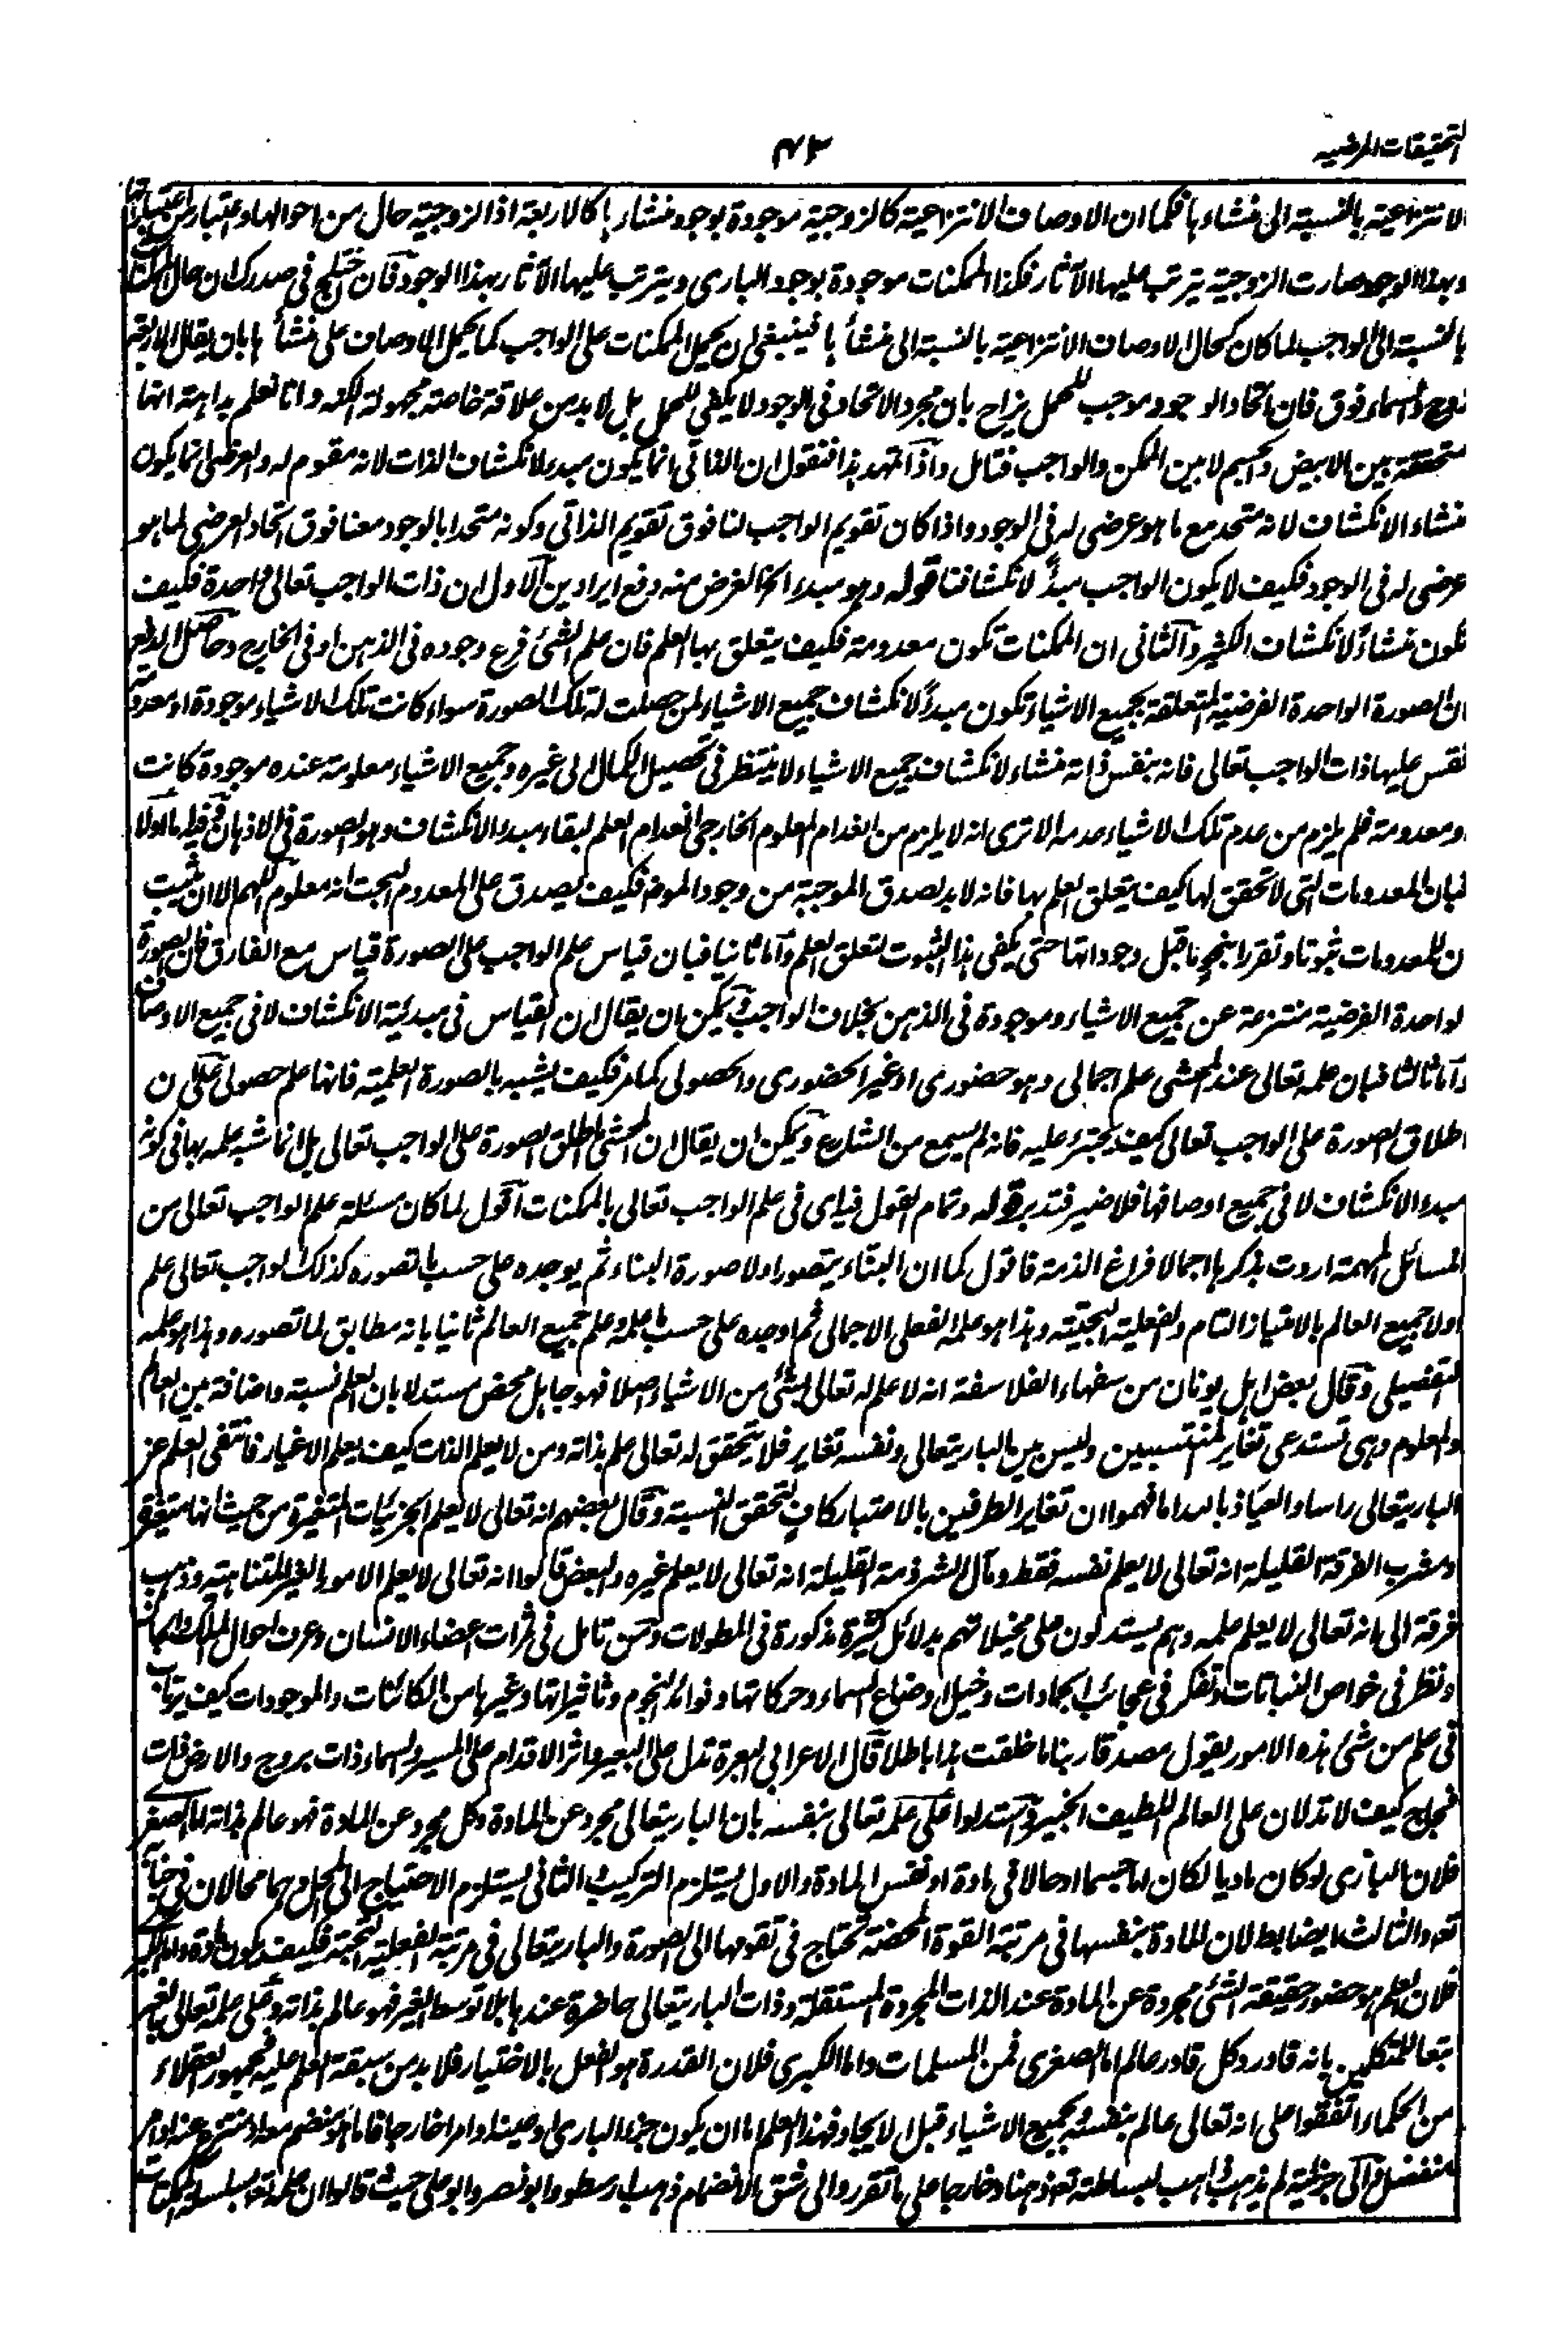 التحقيقات المرضيه
٤٣
الانتزاعية بالنسبة الى منشاءها فكما ان الاوصاف الانتزاعية كالزوجية موجودة بوجود منشاءها كالاربعة اذ الزوجية حال من احوالها واعتبار من اعتباراتها
وبهذا الوجود صارت الزوجية يترتب عليها الآثار فكذا الممكنات موجودة بوجود البارى ويترتب عليها الآثار بهذا الوجود فان اختلج فى صدرك ان حال الممكنات
بالنسبة الى الواجب لما كان كحال الاوصاف الانتزاعية بالنسبة الى منشأها فينبغى ان يحمل الممكنات على الواجب كما يحمل الاوصاف على منشأها بان يقال الاربعة
زوج والسماء فوق فان اتحاد الوجود موجب للحمل يزاح بان مجرد الاتحاد فى الوجود لا يكفى للحمل بل لا بد من علاقة خاصة مجهولة الكنه وانا نعلم بداهته انها
متحققة بين الابيض والجسم لا بين الممكن والواجب فتامل واذا تمهد هذا فنقول ان الذاتى انما يكون مبدء لانكشاف الذات لانه مقوم له والعرضى انما يكون
منشاء الانكشاف لانه متحد مع ما هو عرضى له فى الوجود واذا كان تقويم الواجب لنا فوق تقويم الذاتى وكونه متحدا بالوجود معنا فوق اتحاد العرضى لما هو
عرضى له فى الوجود فكيف لا يكون الواجب مبدأ لانكشافنا قوله وهو مبدء الخ الغرض منه دفع ايرادين الاول ان ذات الواجب تعالى واحدة فكيف
تكون منشأ لانكشاف الكثير والثانى ان الممكنات تكون معدومة فكيف يتعلق بها العلم فان علم الشئ فرع وجوده فى الذهن او فى الخارج وحاصل الدفع
ان الصورة الواحدة الفرضية المتعلقة بجميع الاشياء تكون مبدأ لانكشاف جميع الاشياء لمن حصلت له تلك الصورة سواء كانت تلك الاشياء موجودة او معدومة
فقس عليها ذات الواجب تعالى فانه بنفس ذاته منشاء لانكشاف جميع الاشياء لا ينتظر فى تحصيل الكمال الى غيره وجميع الاشياء معلومة عنده موجودة كانت
او معدومة فلم يلزم من عدم تلك الاشياء عدمه الا ترى انه لا يلزم من انعدام المعلوم الخارجى انعدام العلم لبقاء مبدء الانكشاف وهو الصورة فى الاذهان وفيه اما اولا
فبان المعدومات التى لا تحقق لها كيف يتعلق العلم بها فانه لا بد لصدق الموجبة من وجود الموضوع فكيف يصدق على المعدوم البحت انه معلوم اللهم الا ان يثبت
ان للمعدومات ثبوتا وتقررا بنحو ما قبل وجوداتها حتى يكفى هذا الثبوت لتعلق العلم واما ثانيا فبان قياس علم الواجب على الصورة قياس مع الفارق فان الصورة
الواحدة الفرضية منتزعة عن جميع الاشياء وموجودة فى الذهن بخلاف الواجب ويمكن ان يقال ان القياس فى مبدئية الانكشاف لا فى جميع الاوصاف
واما ثالثا فبان علمه تعالى عند المحشى علم اجمالى وهو حضورى او غير الحضورى والحصولى كما مر فكيف يشبه بالصورة العلمية فانها علم حصولى على ان
اطلاق الصورة على الواجب تعالى كيف يجترء عليه فانه لم يسمع من الشارع ويمكن ان يقال ان المحشى ما اطلق الصورة على الواجب تعالى بل انما شبه علمه بها فى كونه
مبدء الانكشاف لا فى جميع اوصافها فلا ضير فتدبر قوله وتمام القول فيه اى فى علم الواجب تعالى بالممكنات اقول لما كان مسئلة علم الواجب تعالى من
المسائل المهمة اردت بذكرها اجمالا فراغ الذمة فاقول كما ان البنّاء يتصور اولا صورة البناء ثم يوجده على حسب ما تصوره كذلك الواجب تعالى علم
اولا جميع العالم بالامتياز التام والفعلية البحتية وهذا هو علمه الفعلى الاجمالى ثم اوجده على حسب ما علمه وعلم جميع العالم ثانيا بانه مطابق لما تصوره وهذا هو علمه
التفصيلى وقال بعض اهل يونان من سفهاء الفلاسفة انه لا علم له تعالى بشئ من الاشياء اصلا فهو جاهل محض مستدلا بان العلم نسبة واضافة بين العالم
والمعلوم وهى تستدعى تغاير المنتسبين وليس بين البار يتعالى ونفسه تغاير فلا يتحقق له تعالى علم بذاته ومن لا يعلم الذات كيف يعلم الاغيار فانتفى العلم عن
البار يتعالى راسا والعياذ بالله اما فهموا ان تغاير الطرفين بالاعتبار كافٍ لتحقق النسبة وقال بعضهم انه تعالى لا يعلم الجزئيات المتغيرة من حيث انها متغيرة
ومشرب الفرقة القليلة انه تعالى لا يعلم نفسه فقط ومآل الشرذمة القليلة انه تعالى لا يعلم غيره والبعض قالوا انه تعالى لا يعلم الامور الغير المتناهية وذهب
فرقة الى انه تعالى لا يعلم علمه وهم يستدلون على مخيلاتهم بدلائل كثيرة مذكورة فى المطولات ومن تامل فى ثمرات اعضاء الانسان وعرف احوال الملك والجان
ونظر فى خواص النباتات وتفكر فى عجائب الجمادات وخيل اوضاع السماء وحركاتها وفوائد النجوم وتاثيراتها وغيرها من الكائنات والموجودات كيف يرتاب
فى علم من شئ هذه الامور يقول مصدقا ربنا ما خلقت هذا باطلا قال الاعرابى البعرة تدل على البعير واثر الاقدام على المسير والسماء ذات بروج والارض ذات
فجاج كيف لا تدلان على العالم اللطيف الخبير واستدلوا على علمه تعالى بنفسه بان البار يتعالى مجرد عن المادة وكل مجرد عن المادة فهو عالم بذاته اما الصغرى
فلان البارى لو كان ماديا لكان اما جسما او حالا فى مادة او نفس المادة والاول يستلزم التركيب والثانى يستلزم الاحتياج الى المحل وهما محالان فى جنابه
تعه والثالث ايضا بط لان المادة بنفسها فى مرتبة القوة المحضة تحتاج فى تقومها الى الصورة والبار يتعالى فى مرتبة الفعلية البحتة فكيف يكون مادة واما الكبرى
فلان العلم هو حضور حقيقة الشئ مجردة عن المادة عند الذات المجردة المستقلة وذات البار يتعالى حاضرة عندها بلا توسط الغير فهو عالم بذاته وعلى علمه تعالى بالغير
تبعا للمتكلمين بانه قادر وكل قادر عالم اما الصغرى فمن المسلمات واما الكبرى فلان القدرة هو الفعل بالاختيار فلا بد من سبقة العلم عليه فجمهور العقلاء
من الحكماء اتفقوا على انه تعالى عالم بنفسه وبجميع الاشياء قبل الايجاد فهذا العلم اما ان يكون جزء البارى او عينه او امرا خارجا فاما هو منضم معه او منتزع عنه او امر
منفصل فالى جزئية لم يذهب ذاهب لبساطته تعه ذهنا وخارجا على ما تقرر والى شق الانضمام ذهب ارسطو وابو نصر وابو على حيث قالوا ان علمه تعه بسلسلة الممكنات